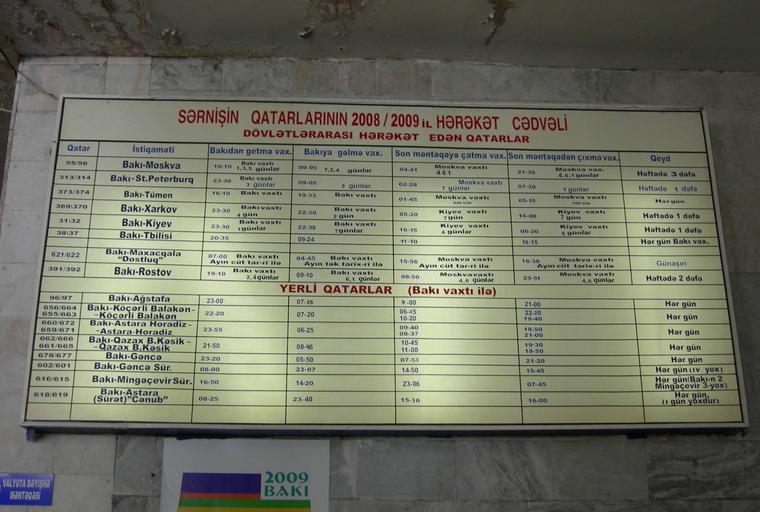 SƏRNİŞİN QATARLARININ 2008 / 2009 İL HƏRƏKƏT CƏDVƏLİ
DÖVLƏTLƏRARASI HƏRƏKƏT EDƏN QATARLAR
Qatar İstiqaməti Bakıdan getmə vax. Bakıya gəlmə vax. Son məntəqəyə çatma vax. Son məntəqədən çıxma vax. Qeyd
55/56 Bakı-Moskva 19-10 Bakı vaxtı 1,3,5 günlər 09-05 1,2,4 günlər 04-41 Moskva vaxtı 4 6 1 21-30 Moskva vax. 4.6.1 günlər Həftədə 3 dəfə
313/314 Bakı-St.Peterburq 23-30 Bakı vaxtı 3 günlər 09-05 3 günlər 02-28 Moskva vaxtı 7 günlər 07-30 7 günlər Həftədə 1 dəfə
373/374 Bakı-Tümen 16-10 Bakı vaxtı 19-33 Bakı vaxtı 01-45 Moskva vaxtı 05-15 Moskva vaxtı Hər gün
369/370 Bakı-Xarkov 23-30 Bakı vaxtı 4 gün 22-30 Bakı vaxtı 2 gün 05-20 Kiyev vaxtı 7 gün 16-00 Kiyev vaxtı 7 gün Həftədə 1 dəfə
31/32 Bakı-Kiyev 23-30 Bakı vaxtı 1 günlər 22-30 Bakı vaxtı 7 günlər 16-15 Kiyev vaxtı 4 günlər 06-20 Kiyev vaxtı 5 günlər Həftədə 1 dəfə
38/37 Bakı-Tbilisi 20-35 09-24 11-10 18-15 Hər gün Bakı vax.
621/622 Bakı-Maxacqala "Dostluq" 07-00 Bakı vaxtı Ayın cüt tar-ri ilə 04-45 Bakı vaxtı Ayın tək tarix-ri ilə 15-56 Moskva vaxtı Ayın cüt tar-ri ilə 16-38 Moskva vaxtı Ayın cüt tar-ri ilə Günaşırı
391/392 Bakı-Rostov 19-10 Bakı vaxtı 2,4 günlər 09-10 Bakı vaxtı 6,1 günlər 08-50 Moskvavaxtı 4,6 günlər 23-51 Moskva vaxtı 4,6 günlər Həftədə 2 dəfə
YERLİ QATARLAR (Bakı vaxtı ilə)
96/97 Bakı-Ağstafa 23-00 07-35 9-00 21-00 Hər gün
656/664 Bakı-Köçərli Balakən- 22-20 07-20 06-45 22-20 Hər gün
655/663 -Köçərli Balakən 10-20 19-40
660/672 Bakı-Astara Horadiz- 23-55 06-25 09-40 19-50 Hər gün
659/671 -Astara-Horadiz 08-37 21-00
662/666 Bakı-Qazax B.Kəsik- 21-50 08-46 10-45 19-30 Hər gün
661/665 -Qazax B.Kəsik 11-00 18-50
678/677 Bakı-Gəncə 23-20 05-50 07-53 21-20 Hər gün
602/601 Bakı-Gəncə Sür. 08-00 23-07 14-50 15-45 Hər gün (IV yox)
616/615 Bakı-Mingəçevir Sür. 16-50 14-20 23-06 07-45 Hər gün(Bakı-n 2 Mingəçevir 3-yox)
618/619 Bakı-Astara (Sürət)"Cənub" 08-25 23-40 15-36 16-00 Hər gün, (1 gün yoxdur)
VALYUTA DƏYİŞMƏ
MƏNTƏQƏSİ
2009
BAKI